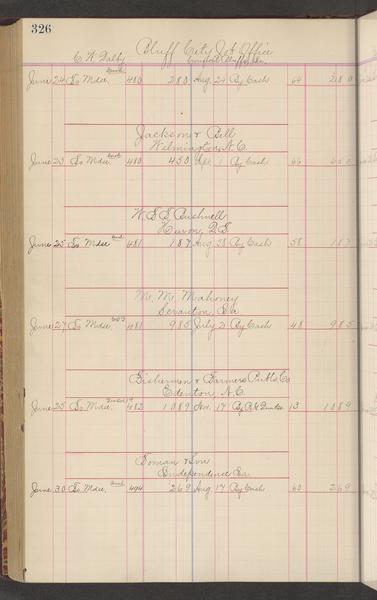 326
Bluff City Job Office
C. W. Dalby
June 24 To Mdse. 480 2 80 Aug 24 By Cash 64 2 80
Jackson & Bell
Wilmington, N.C.
June 23 To Mdse. 480 4 50 Sept 1 By Cash 66 4 50
W. S. S. Bushnell
Huron, D.S.
June 25 To Mdse 481 1 87 Aug 28 By Cash 58 1 87
M. M. Mahoney
Scranton, Ia
June 27 To Mdse 481 9 85 July 2 By Cash 48 9 85
Fishermen & Farmers Pub. Co
Edenton, N.C.
June 25 To Mdse. 482 10 89 Nov. 17 By 13 10 89
Toman & Son
Independence Ia
June 30 To Mdse. 494 2 69 Aug 17 By Cash 60 2 69